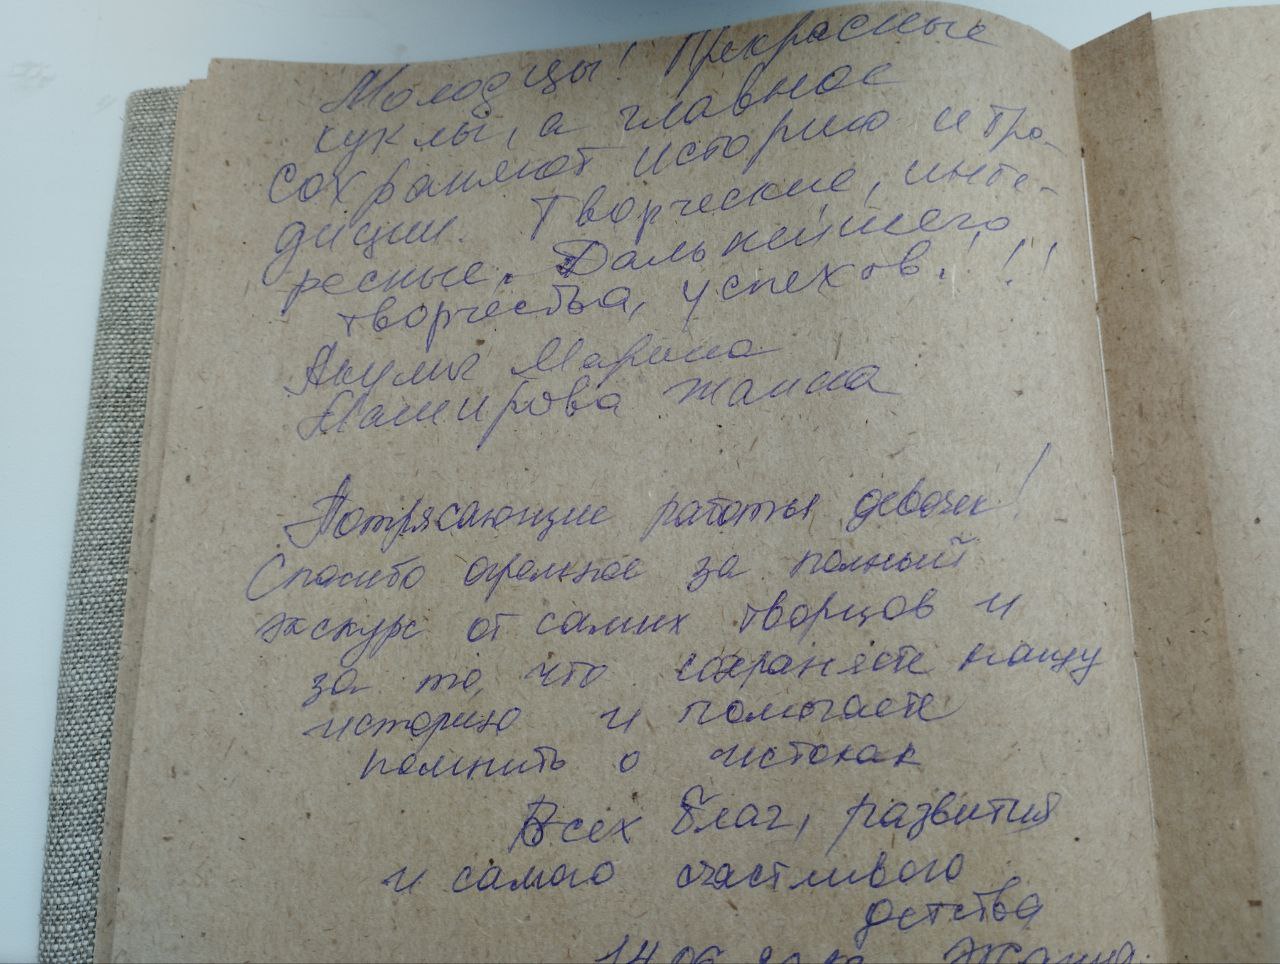 Молодцы! Прекрасные
куклы, а главное
сохраняют историю и тра-
диции. Творческие, инте-
ресные. Дальнейшего
творчества, успехов!!!
Марина
Жанна
Потрясающие работы девочек!
Спасибо огромное за полный
экскурс от самих творцов и
за то, что сохраняете нашу
историю и помогаете
помнить о истоках
Всех благ, развития
и самого счастливого
детства
14.06 Жанна